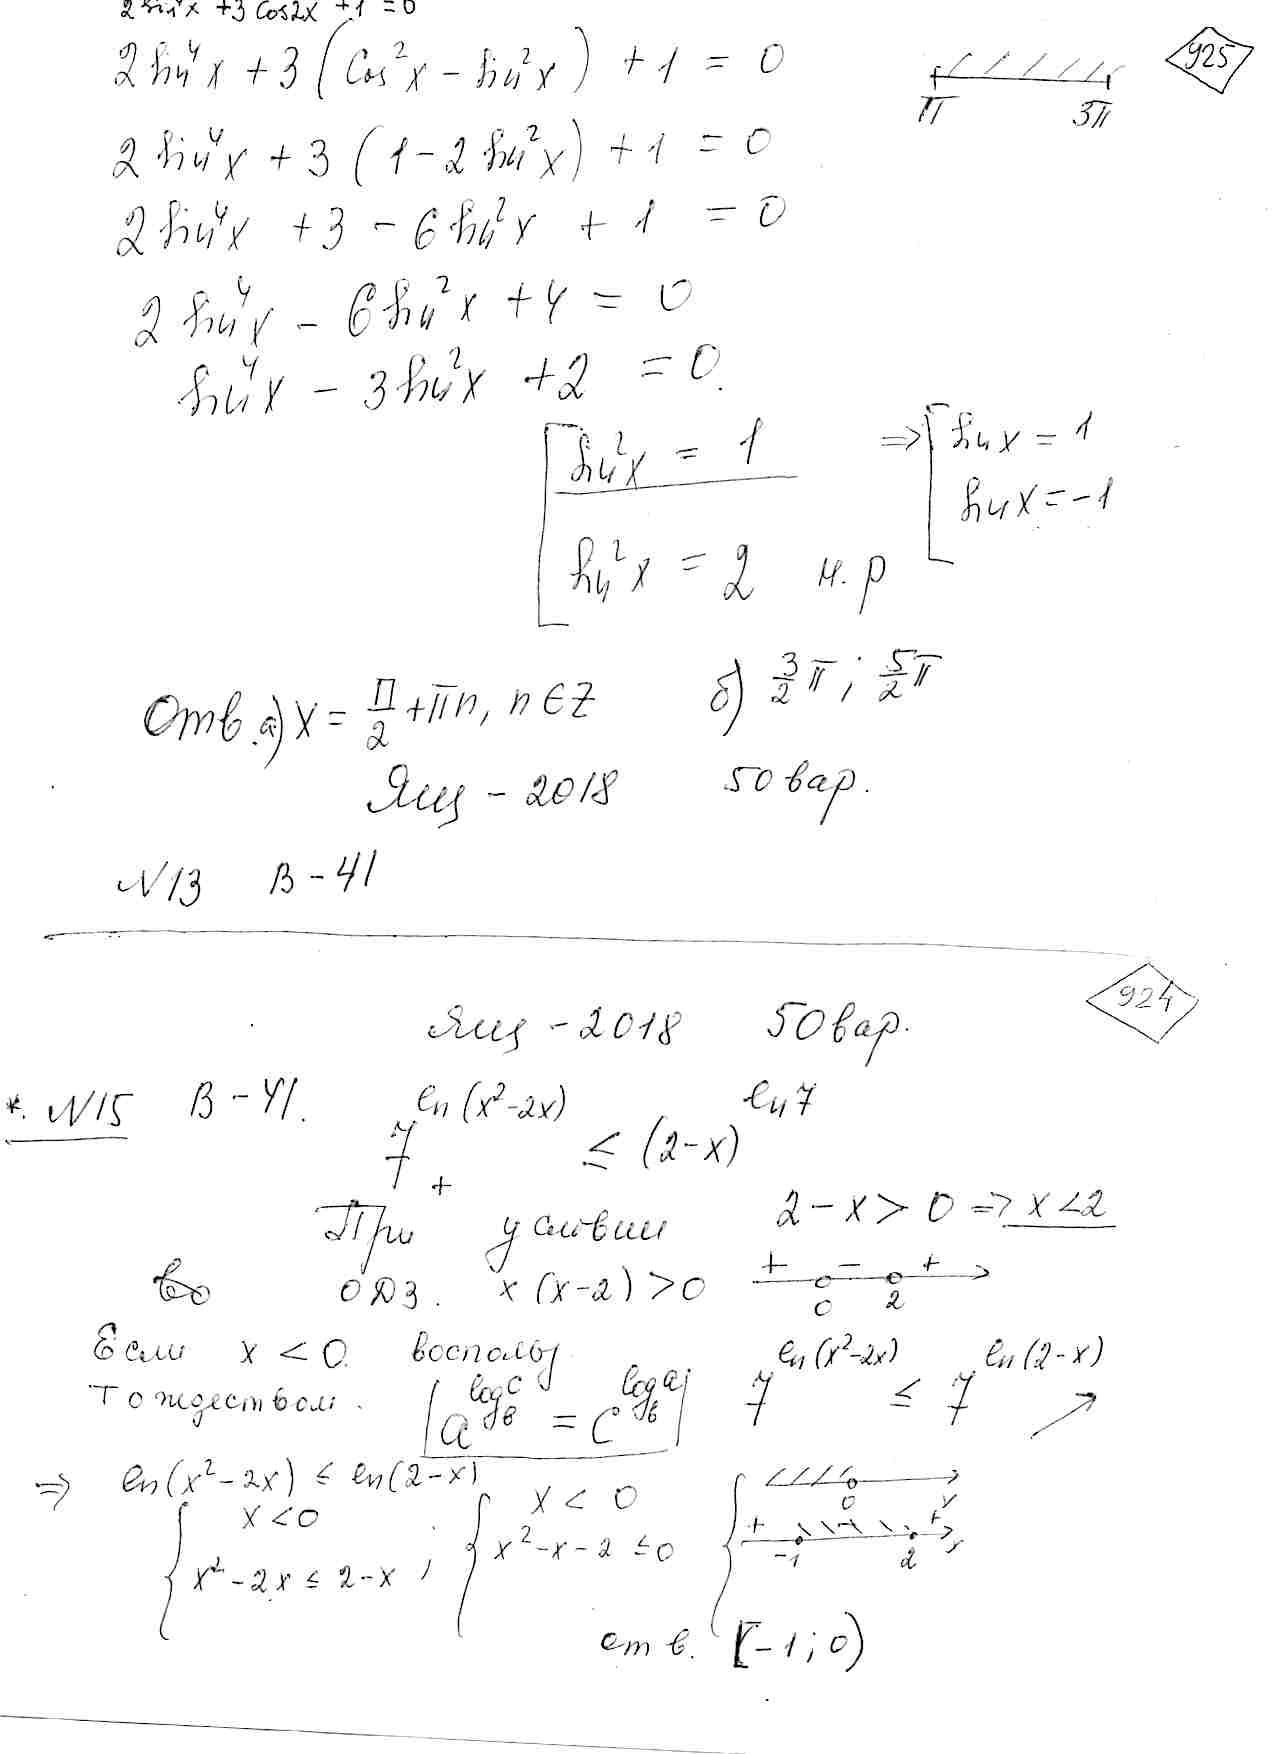 2 sin⁴x + 3 cos2x + 1 = 0
2 sin⁴x + 3 (cos²x - sin²x) + 1 = 0
925
π 3π
2 sin⁴x + 3 (1 - 2 sin²x) + 1 = 0
2 sin⁴x + 3 - 6 sin²x + 1 = 0
2 sin⁴x - 6 sin²x + 4 = 0
sin⁴x - 3 sin²x + 2 = 0.
[ sin²x = 1 ⇒ [ sin x = 1
sin x = -1
sin²x = 2 н.р
Отв. а) x = π/2 + πn, n ∈ Z б) 3/2 π; 5/2 π
Ящ - 2018 50 вар.
N13 В - 41
924
Ящ - 2018 50 вар.
*. N15 В - 41. 7^(ln(x²-2x)) ≤ (2-x)^(ln7)
+
При условии 2 - x > 0 ⇒ x < 2
во ОДЗ. x(x-2) > 0 + - + 0 2
Если x < 0. воспольз
тождеством. a^(log_b c) = c^(log_b a) 7^(ln(x²-2x)) ≤ 7^(ln(2-x))
⇒ ln(x²-2x) ≤ ln(2-x)
{ x < 0 ; { x < 0 { 0 x
x² - 2x ≤ 2 - x x² - x - 2 ≤ 0 + -1 - 2 + x
отв. [-1; 0)